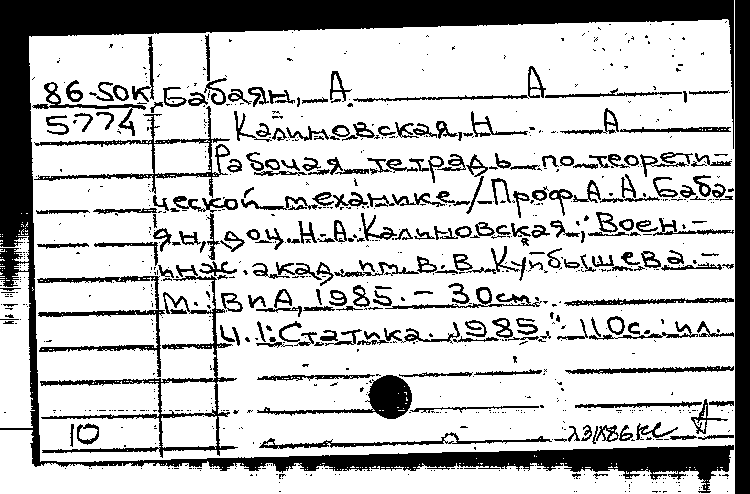 86-50к Бабаян, А А
5774 Калиновская, Н А
Рабочая тетрадь по теорети-
ческой механике / Проф. А. А. Баба-
ян, доц. Н. А. Калиновская; Воен.-
инж. акад. им. В. В. Куйбышева. -
М.: ВИА, 1985. - 30 см.
Ч. 1: Статика. 1985. 110 с.: ил.
10